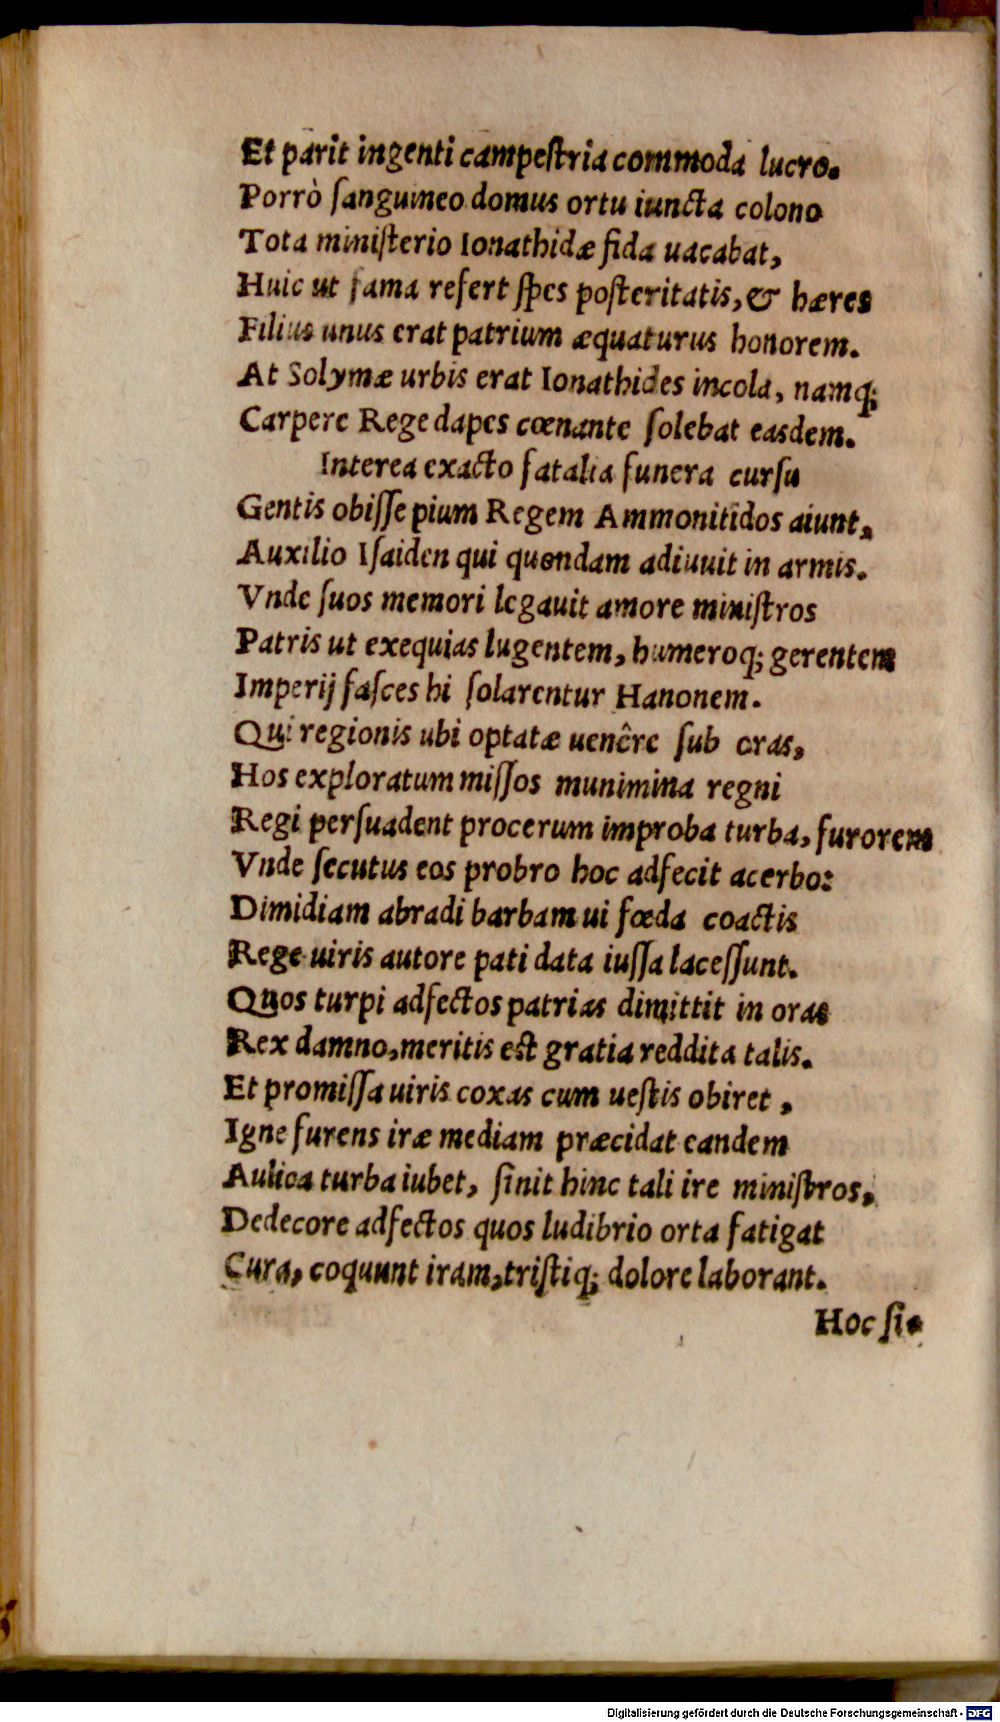 Et parit ingenti campeſtria commoda lucro.
Porrò ſanguineo domus ortu iuncta colono
Tota miniſterio Ionathidæ fida uacabat,
Huic ut fama refert ſpes poſteritatis, & hæres
Filius unus erat patrium æquaturus honorem.
At Solymæ urbis erat Ionathides incola, namq;
Carpere Rege dapes cœnante ſolebat easdem.
Interea exacto fatalia funera curſu
Gentis obiſſe pium Regem Ammonitidos aiunt,
Auxilio Iſaiden qui quondam adiuuit in armis.
Vnde ſuos memori legauit amore miniſtros
Patris ut exequias lugentem, humeroq; gerentem
Imperij faſces hi ſolarentur Hanonem.
Qui regionis ubi optatæ uenêre ſub oras,
Hos exploratum miſſos munimina regni
Regi perſuadent procerum improba turba, furorem
Vnde ſecutus eos probro hoc adfecit acerbo:
Dimidiam abradi barbam ui fœda coactis
Rege uiris autore pati data iuſſa laceſſunt.
Quos turpi adfectos patrias dimittit in oras
Rex damno, meritis eſt gratia reddita talis.
Et promiſſa uiris coxas cum ueſtis obiret,
Igne furens iræ mediam præcidat eandem
Aulica turba iubet, ſinit hinc tali ire miniſtros,
Dedecore adfectos quos ludibrio orta fatigat
Cura, coquunt iram, triſtiq; dolore laborant.
Hoc ſi-
Digitalisierung gefördert durch die Deutsche Forschungsgemeinschaft - DFG